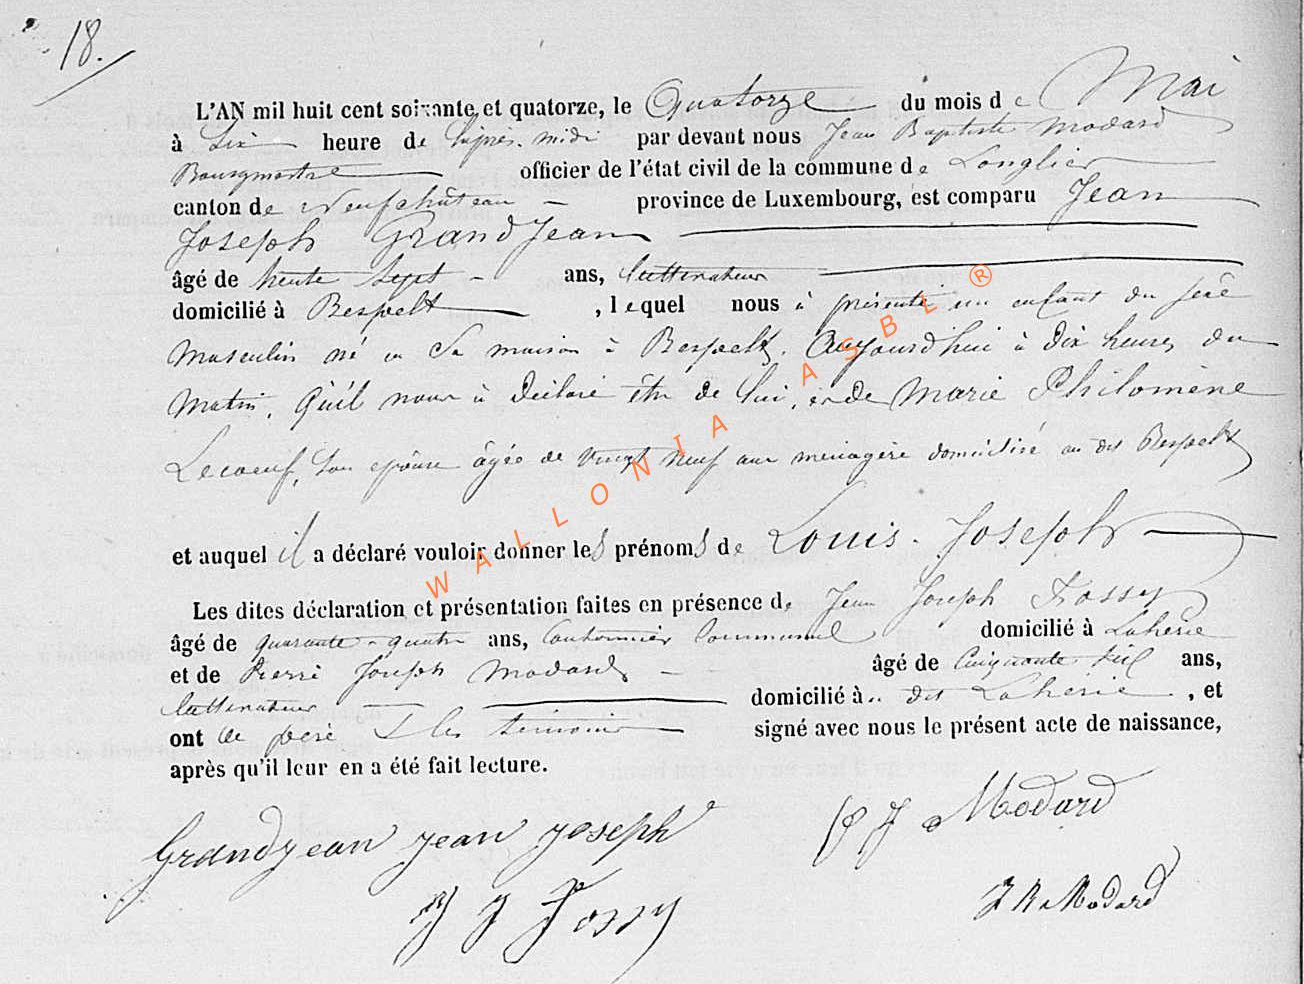 18.
L'AN mil huit cent soixante et quatorze, le Quatorze du mois de Mai
à Six heure de l'après-midi par devant nous Jean Baptiste Modard
Bourgmestre officier de l'état civil de la commune de Longlier
canton de Neufchâteau province de Luxembourg, est comparu Jean
Joseph GrandJean
âgé de trente sept ans, cultivateur
domicilié à Respelt , lequel nous à présenté un enfant du sexe
masculin né en Sa maison à Respelt. Aujourd'hui à dix heures du
Matin, Qu'il nous a déclaré être de lui, et de Marie Philomène
Lecoeuf, son épouse âgée de vingt neuf ans ménagère domiciliée au dit Respelt
et auquel il a déclaré vouloir donner les prénoms de Louis-Joseph
Les dites déclaration et présentation faites en présence de Jean Joseph Fossy
âgé de quarante-quatre ans, Cantonnier Communal domicilié à Laherie
et de Pierre Joseph Modard âgé de Cinquante ans,
cultivateur domicilié à dit Laherie , et
ont le père & les témoins signé avec nous le présent acte de naissance,
après qu'il leur en a été fait lecture.
Grandjean Jean Joseph P J Modard
J J Fossy J B Modard
WALLONIA ASBL ®